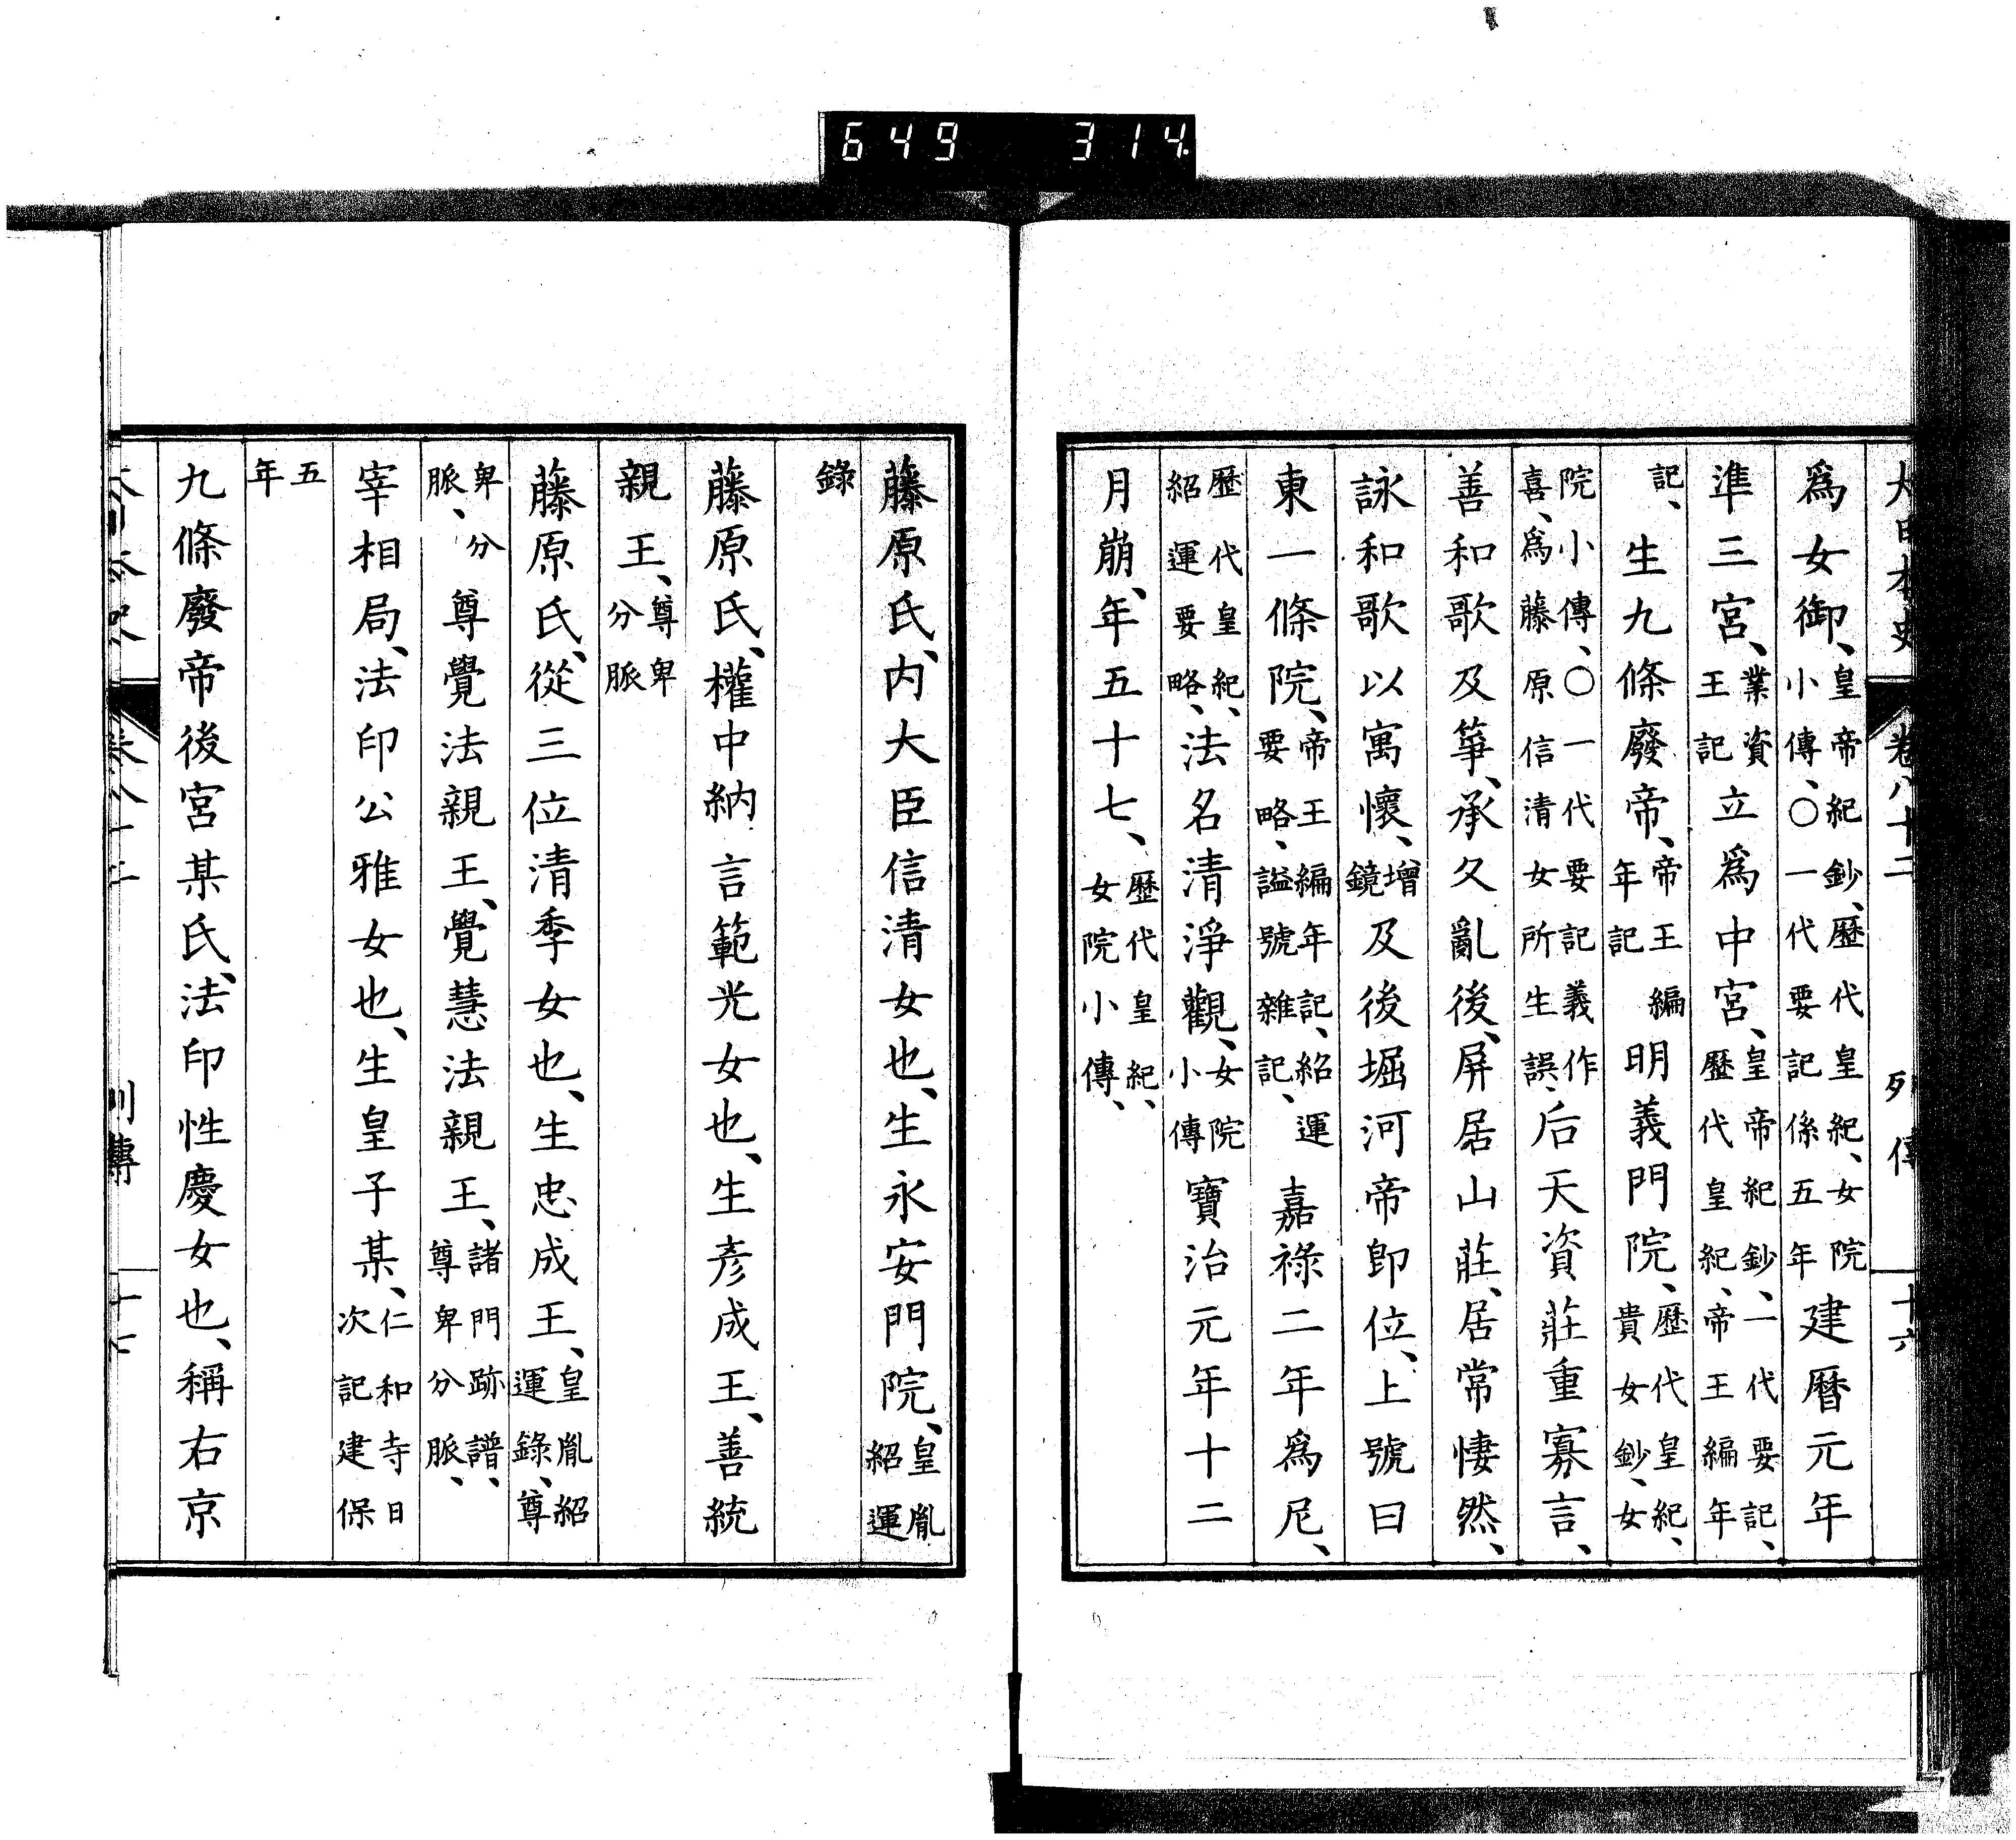 649 314
大日本史 卷八十二 列傳 十六
爲女御、皇帝紀鈔、歷代皇紀、女院小傳、〇一代要記係五年建曆元年
準三宮、業資王記立爲中宮、皇帝紀鈔、一代要記、歷代皇紀、帝王編年
記、生九條廢帝、帝王編年記明義門院、歷代皇紀、貴女鈔、女
院小傳、〇一代要記義喜、爲藤原信清女所生誤、作后天資莊重寡言、
善和歌及箏、承久亂後、屏居山莊、居常悽然、
詠和歌以寓懷、增鏡及後堀河帝卽位、上號曰
東一條院、帝王編年記、紹運要略、謚號雜記、嘉祿二年爲尼、
歷代皇紀、紹運要略、法名清淨觀、女院小傳寶治元年十二
月崩、年五十七、歷代皇紀、女院小傳、
藤原氏、内大臣信清女也、生永安門院、皇胤紹運
錄
藤原氏、權中納言範光女也、生彥成王、善統
親王、尊卑分脈
藤原氏、從三位清季女也、生忠成王、皇胤紹運錄、尊
卑分脈、尊覺法親王、覺慧法親王、諸門跡譜、尊卑分脈、
宰相局、法印公雅女也、生皇子某、仁和寺日次記建保
五年
九條廢帝後宮某氏、法印性慶女也、稱右京
列傳